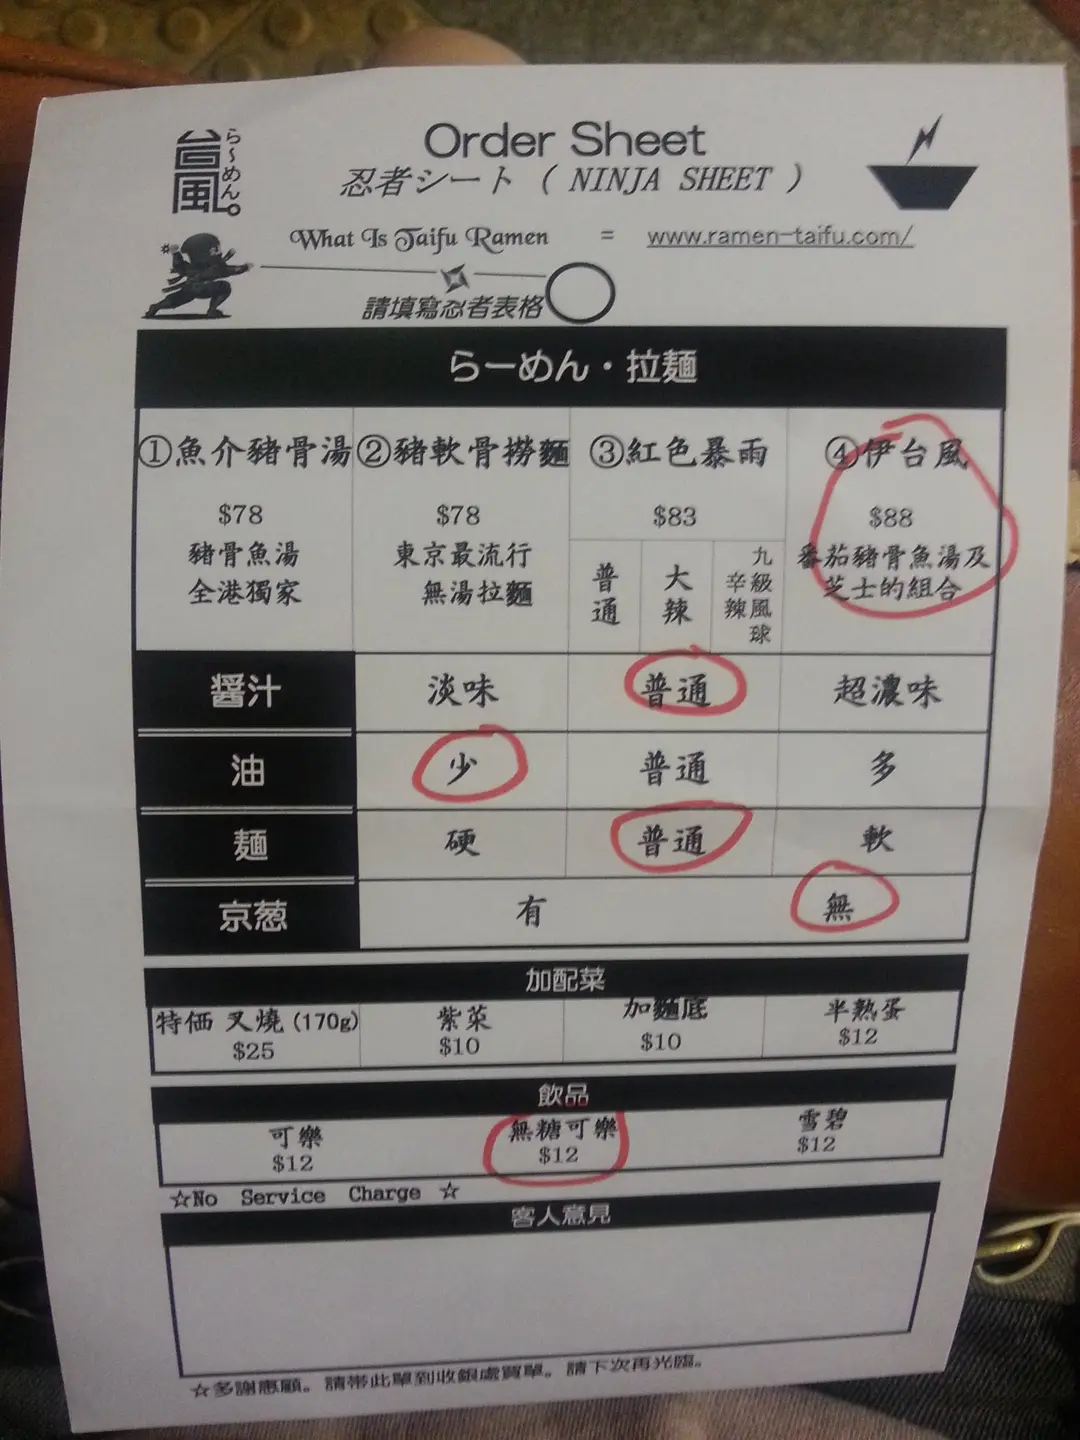 Order Sheet
台風
ら～めん。
忍者シート ( NINJA SHEET )
What Is Taifu Ramen = www.ramen-taifu.com/
請填寫忍者表格
らーめん・拉麺
①魚介豬骨湯 ②豬軟骨撈麵 ③紅色暴雨 ④伊台風
$78 $78 $83 $88
豬骨魚湯
全港獨家
東京最流行
無湯拉麵
普通 大辣 九級風球辛辣
番茄豬骨魚湯及
芝士的組合
醤汁 淡味 普通 超濃味
油 少 普通 多
麺 硬 普通 軟
京葱 有 無
加配菜
特価 叉燒 (170g) 紫菜 加麵底 半熟蛋
$25 $10 $10 $12
飲品
可樂 無糖可樂 雪碧
$12 $12 $12
☆No Service Charge ☆
客人意見
☆多謝惠顧。請帶此單到收銀處買單。請下次再光臨。